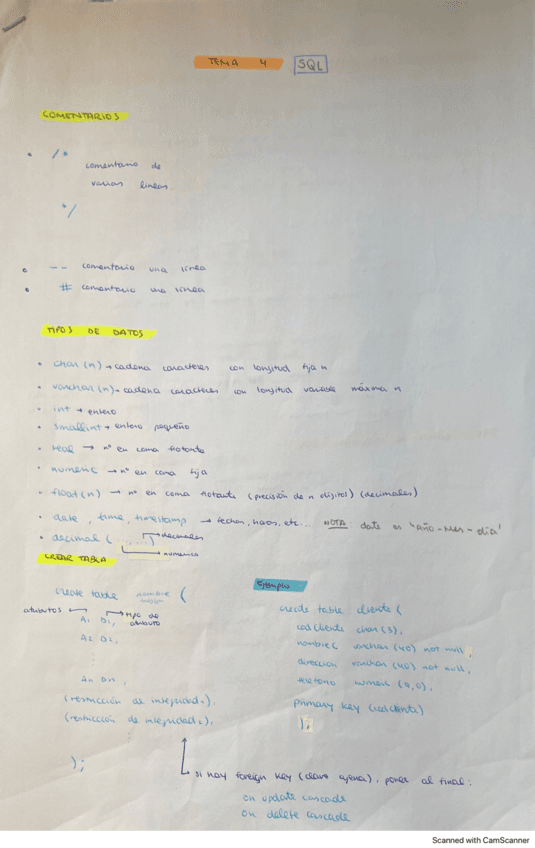 TEMA 4 SQL
COMENTARIOS
• /*
comentario de
varias lineas
*/
• -- comentario una linea
• # comentario una linea
TIPOS DE DATOS
• char (n) → cadena caracteres con longitud fija n
• varchar (n) → cadena caracteres con longitud variable máxima n
• int → entero
• smallint → entero pequeño
• real → nº en coma flotante
• numeric → nº en coma fija
• float (n) → nº en coma flotante (precisión de n dígitos) (decimales)
• date, time, timestamp → fechas, horas, etc... NOTA: date es "Año-Mes-día"
• decimal ( . , . ) → decimales
→ numérico
CREAR TABLA
create table nombre (
atributos ← A₁ D₁, → tipo de atributo
A₂ D₂,
⋮
An Dn,
(restricción de integridad₁),
(restricción de integridad₂),
⋮
);
Ejemplo
create table cliente (
codCliente char (3),
nombre ( varchar (40) not null,
direccion varchar (40) not null,
telefono numeric (9,0),
primary key (codCliente)
);
si hay foreign key (clave ajena), poner al final:
on update cascade
on delete cascade
Scanned with CamScanner